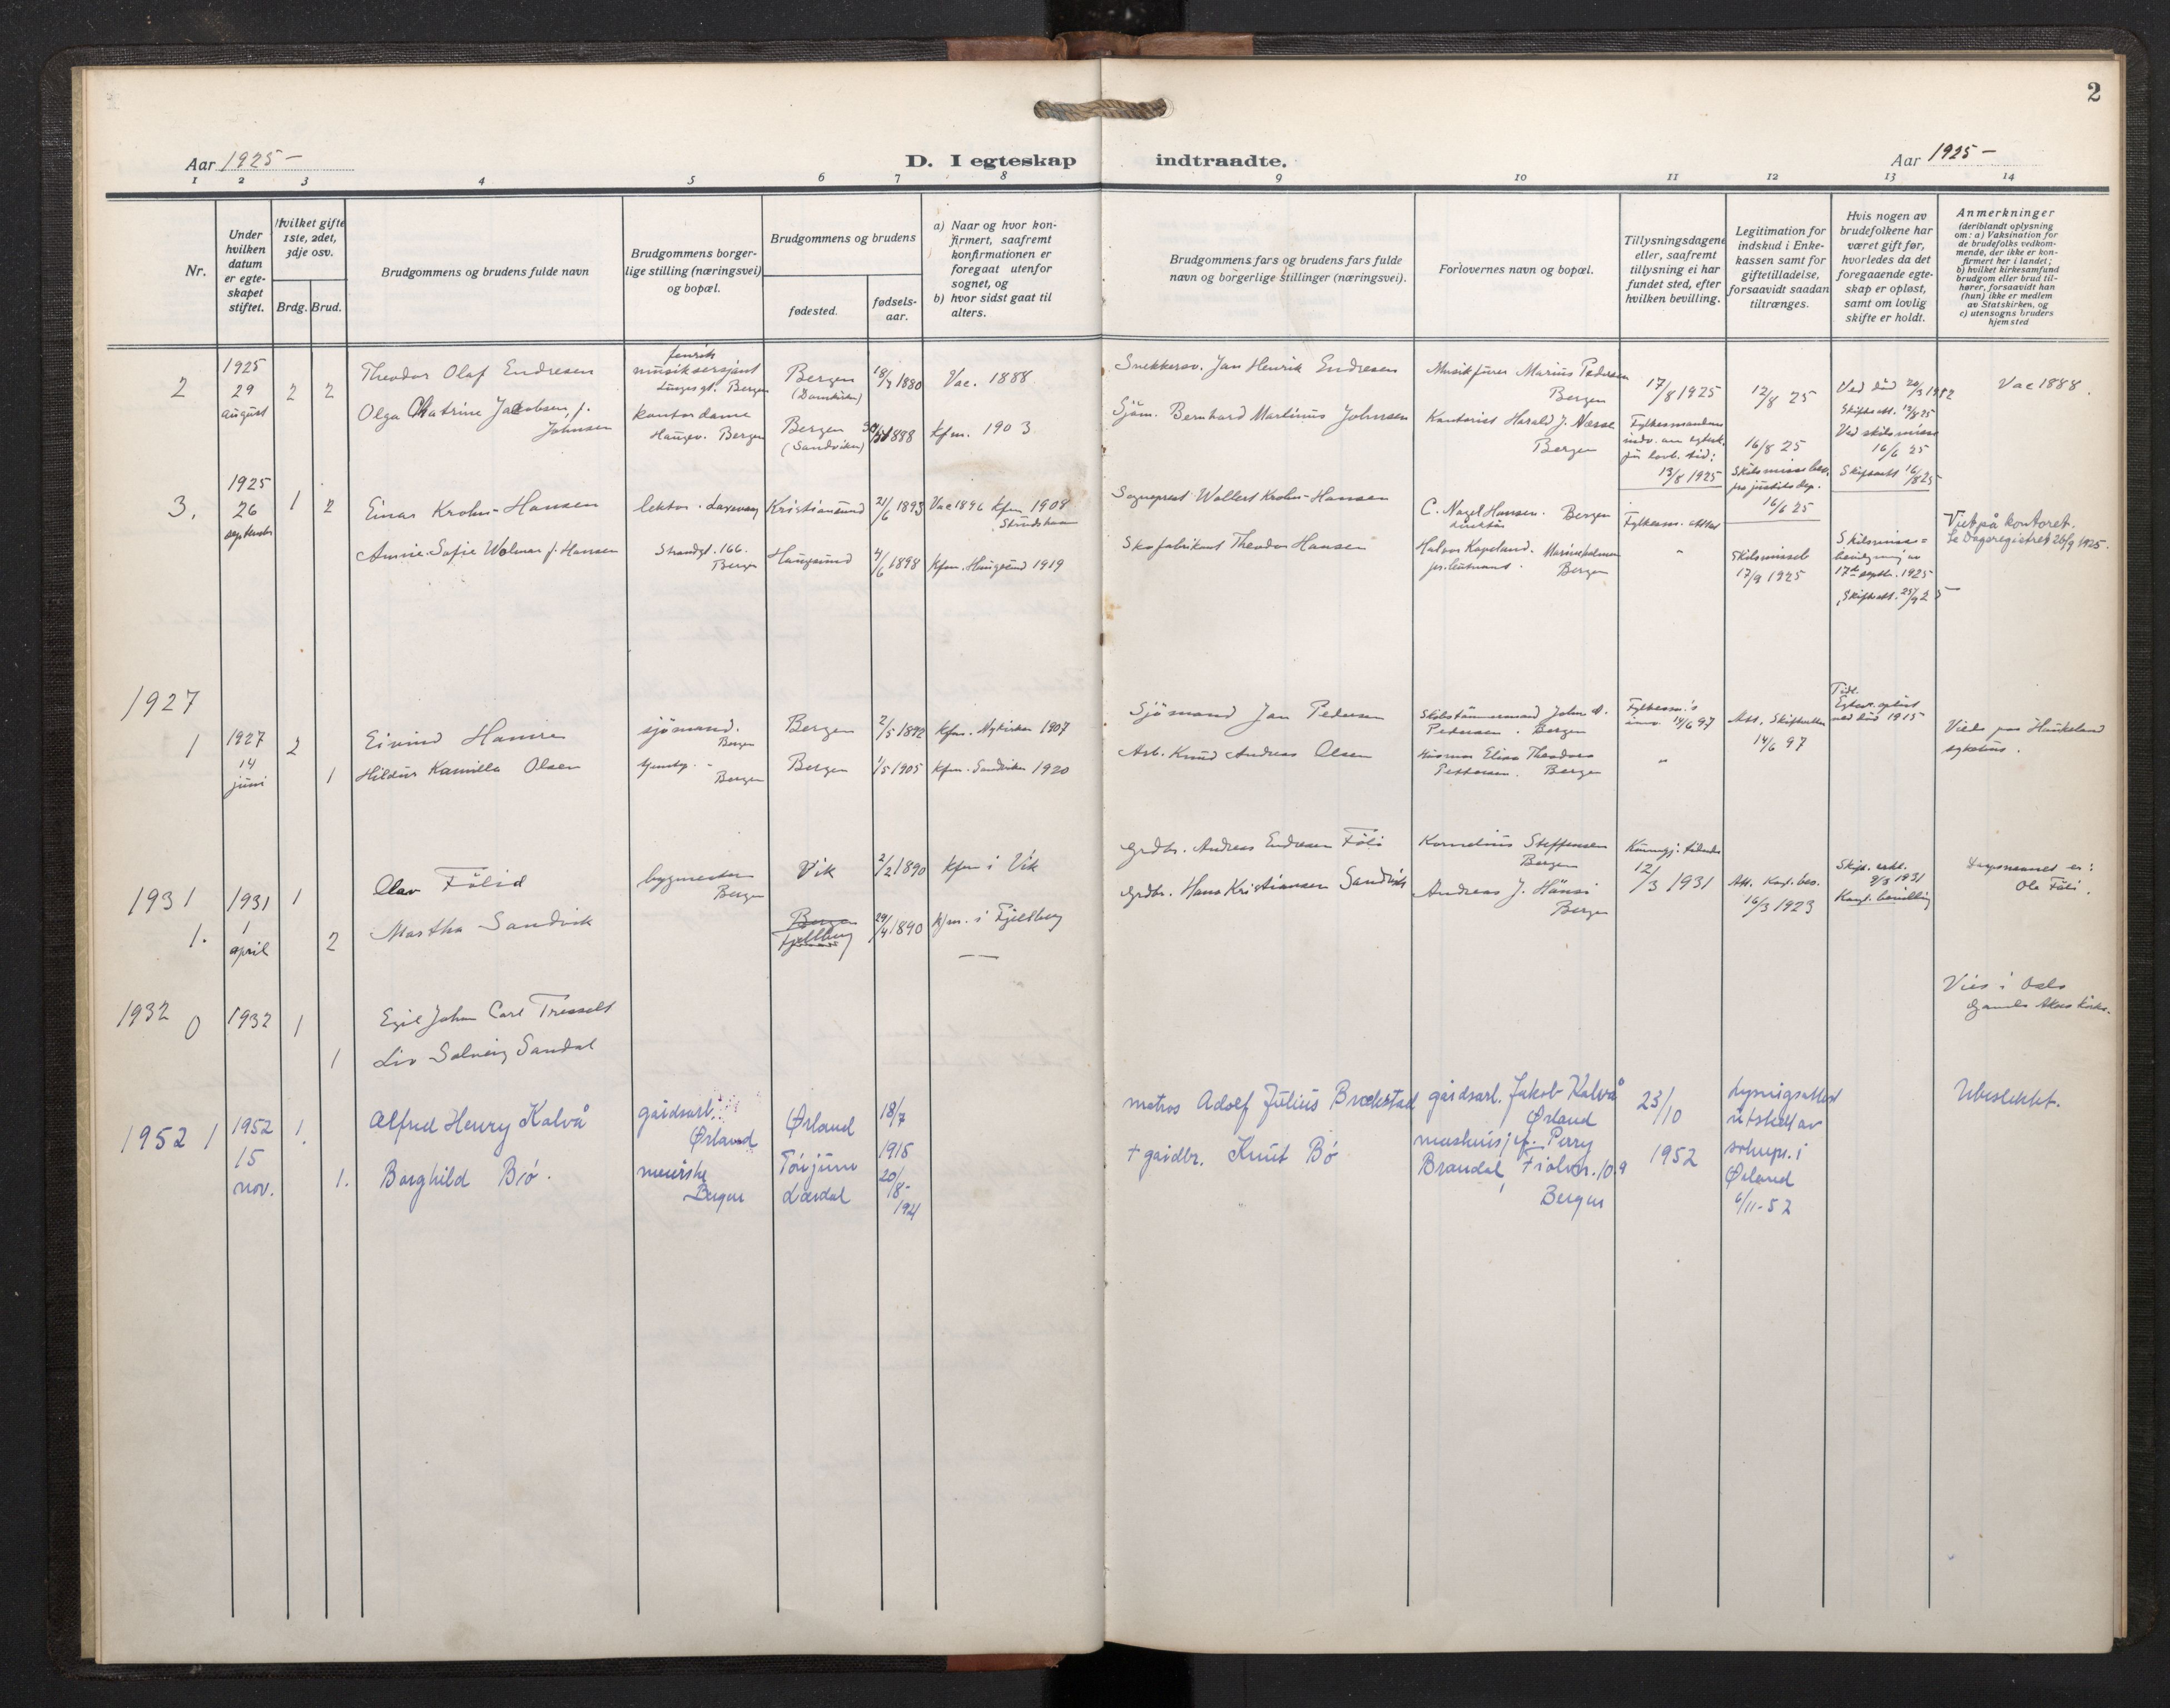 2
Aar 1925 –
D. I egteskap indtraadte.
Aar 1925 –
1 2 3 4 5 6 7 8 9 10 11 12 13 14
Nr.
Under hvilken datum er egteskapet stiftet.
Hvilket gifte 1ste, 2det, 3dje osv.
Brdg. Brud.
Brudgommens og brudens fulde navn
Brudgommens borgerlige stilling (næringsvei) og bopæl.
Brudgommens og brudens
fødested.
fødselsaar.
a) Naar og hvor konfirmert, saafremt konfirmationen er foregaat utenfor sognet, og
b) hvor sidst gaat til alters.
Brudgommens fars og brudens fars fulde navn og borgerlige stillinger (næringsvei).
Forlovernes navn og bopæl.
Tillysningsdagene eller, saafremt tillysning ei har fundet sted, efter hvilken bevilling.
Legitimation for indskud i Enkekassen samt for giftetilladelse, forsaavidt saadan tiltrænges.
Hvis nogen av brudefolkene har været gift før, hvorledes da det foregaaende egteskap er opløst, samt om lovlig skifte er holdt.
Anmerkninger
(deriblandt oplysning om: a) Vaksination for de brudefolks vedkommende, der ikke er konfirmert her i landet;
b) hvilket kirkesamfund brudgom eller brud tilhører, forsaavidt han (hun) ikke er medlem av Statskirken, og
c) utensogns bruders hjemsted
2 1925 29 august 2 2
Theodor Olaf Endresen
musiksersjant
Bergen
Bergen (Domkirken)
18/7 1880
Vac. 1888
Snekkersv. Jan Henrik Endresen
Musikfurer Marius Pedersen Bergen
17/8 1925
12/8 25
Vac 1888.
Olga Katrine Jacobsen, f. Johnsen
kontordame
Haugev. Bergen
Bergen (Sandviken)
1888
kfm. 1903
Sjøm. Bernhard Martinus Johnsen
Kontorist Harald J. Næsse Bergen
13/8 1925
16/8 25
Ved skilsmisse 16/6 25
Skifteatt 16/8 25
3. 1925 26 september 1 2
Einar Krohn-Hansen
lektor
Kristiansund
21/6 1893
Vac 1896 kfm 1908
Sogneprest Wollert Krohn-Hansen
C. Nagel Hansen. Bergen
Fylkesm. attest
16/6 25
Viet på kontoret.
Se Dagsregistret 26/9 1925.
Annie Sofie Wolmar f. Hansen
Strandgt. 166. Bergen
Haugesund
4/6 1898
kfm. Haugesund 1919
Skofabrikant Theodor Hansen
Bergen
"
17/9 1925
Skilsmissebevilgning av
17de septr. 1925
Skifteatt. 25/9 25
1927
1 1927 14 juni 2
Eivind Hamre
sjømand. Bergen
Bergen
2/5 1892
kfm. Nykirken 1907
Sjømand Jan Pedersen
Pedersen. Bergen
14/6 97
Viede paa Haukeland sykehus.
1
Hildur Kamilla Olsen
Bergen
Bergen
1/5 1905
kfm. Sandviken 1920
Arb. Knud Andreas Olsen
Elisa Theodora
Pettersen. Bergen
"
1931
1. 1931 1 april 1
Olav Fölid
bygmester Bergen
Vik
2/2 1890
kfm i Vik
Grdbr. Andreas Endresen Föli
Kornelius Steffensen Bergen
12/3 1931
16/3 1923
9/3 1931
Kgl. bevilling
Ole Föli.
2
Martha Sandvik
Bergen
Fjelberg
29/4 1890
kfm. i Fjelberg
Grdbr. Hans Kristiansen Sandvik
Andreas J. Hånsi Bergen
1932
0 1932 1
Egil Johan Carl Tresselt
Vies i Oslo
Gamle Akers kirke.
1
Liv Solveig Sandal
1952 1 1952 15 nov. 1.
Alfred Henry Kalvå
gårdsarb. Ørland
Ørland
18/7 1915
matros Adolf Julius Brækstad
gårdsarb. Jakob Kalvå Ørland
23/10 1952
lysningsattest utstedt av soknepr. i Ørland 6/11-52
Ubeslektet.
1.
Borghild Bø.
meierske Bergen
Tønjum Lærdal
20/8-1921
+ gårdbr. Knut Bø
Perry Brandal, Fiolvn. 109 Bergen